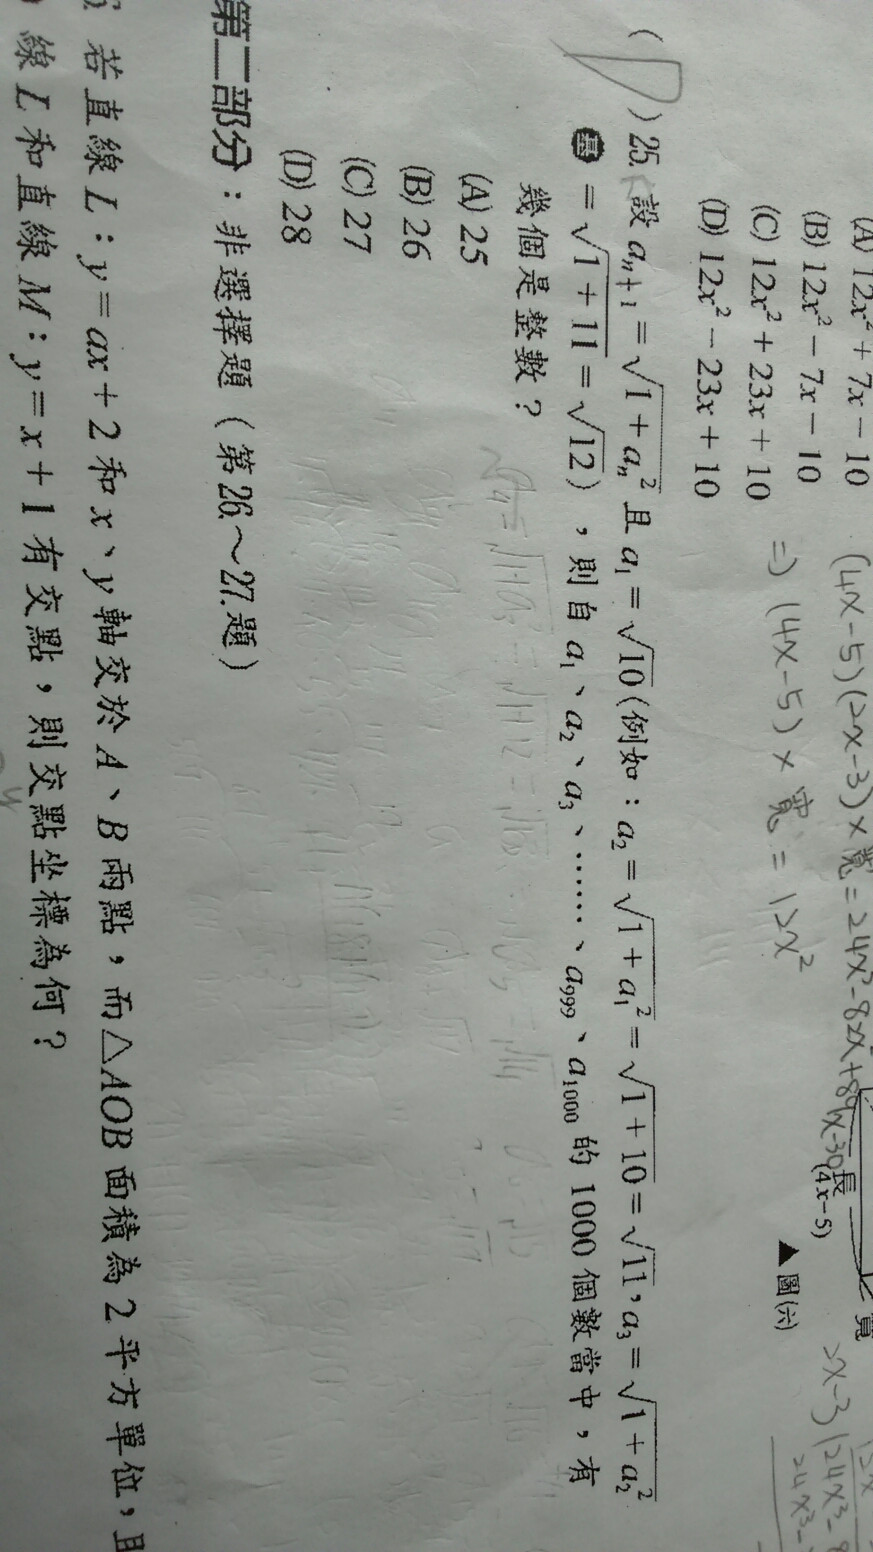 (A) 12x² + 7x − 10
(B) 12x² − 7x − 10
(C) 12x² + 23x + 10
(D) 12x² − 23x + 10
(4x−5)(2x−3)×寬=24x³−82x²+89x−30
⇒ (4x−5)×寬=12x²
長
(4x−5)
寬
▲圖(六)
2x−3
( D ) 25. 設 aₙ₊₁ = √(1 + aₙ²) 且 a₁ = √10 (例如：a₂ = √(1 + a₁²) = √(1 + 10) = √11，a₃ = √(1 + a₂²)
基 = √(1 + 11) = √12)，則自 a₁、a₂、a₃、……、a₉₉₉、a₁₀₀₀ 的 1000 個數當中，有
幾個是整數？
(A) 25
(B) 26
(C) 27
(D) 28
第二部分：非選擇題（第26.～27.題）
若直線 L：y = ax + 2 和 x、y 軸交於 A、B 兩點，而△AOB 面積為 2 平方單位，且
線 L 和直線 M：y = x + 1 有交點，則交點坐標為何？